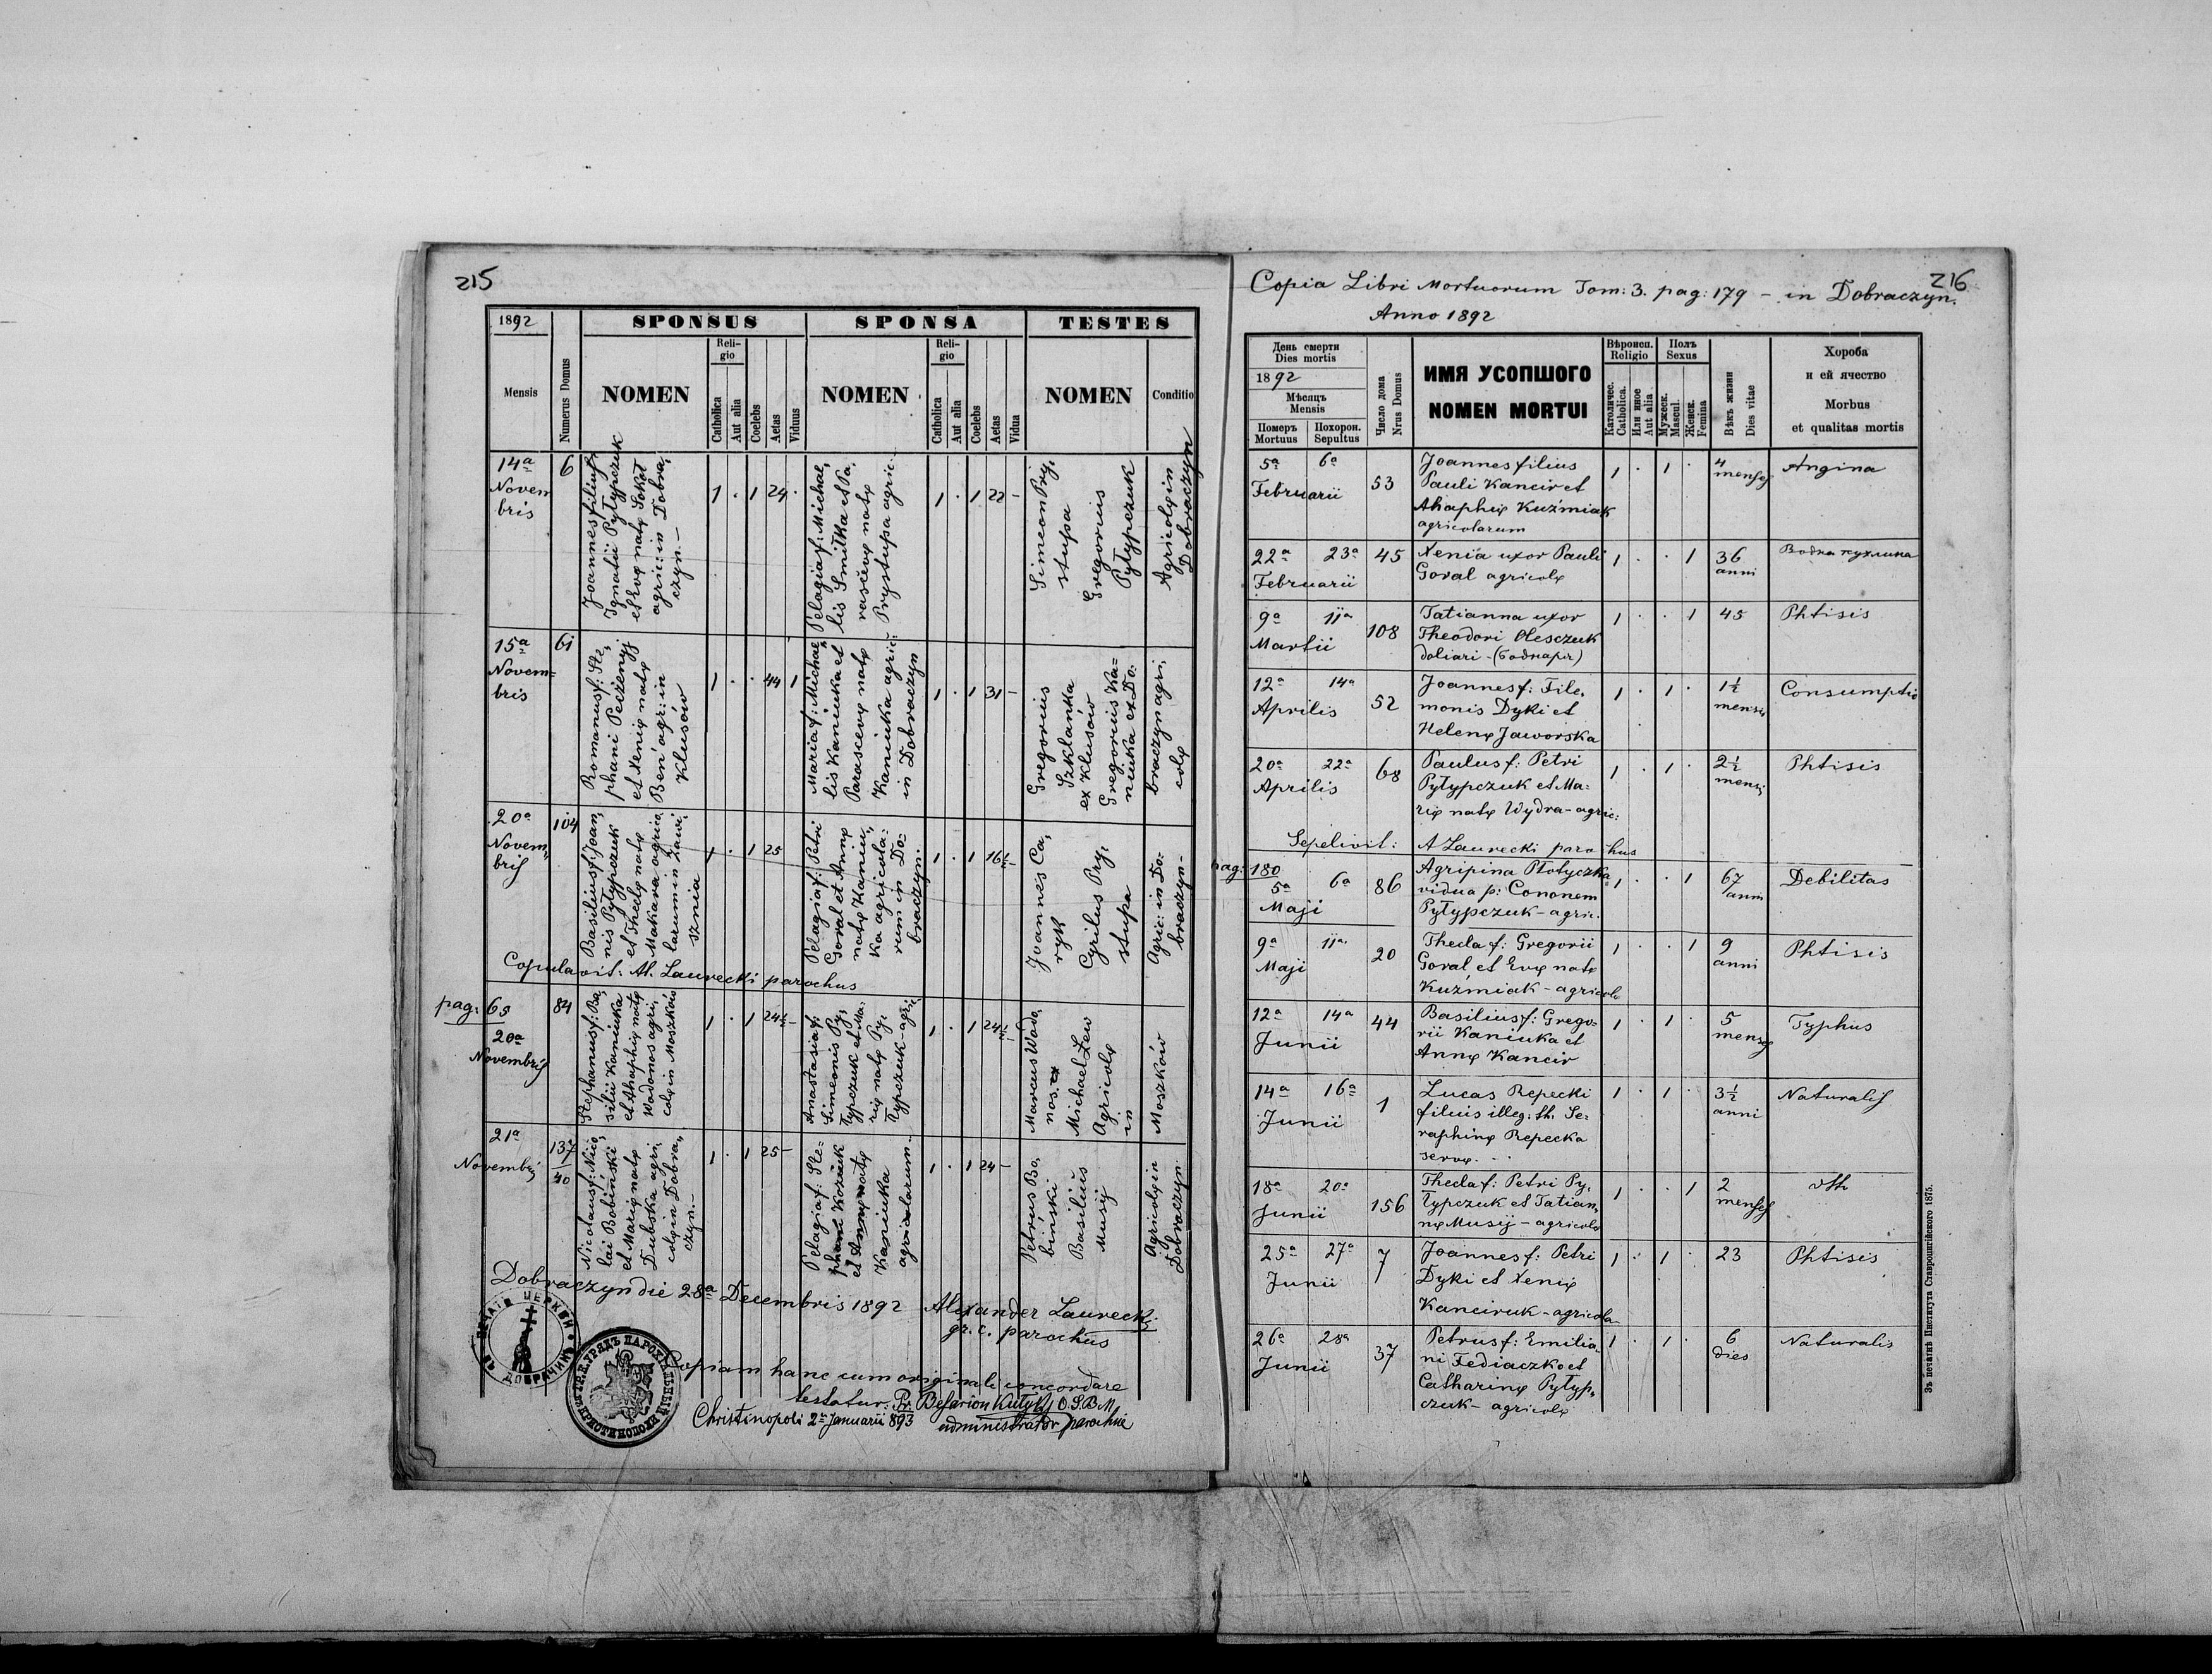 215
1892
SPONSUS
SPONSA
TESTES
Mensis
Numerus Domus
NOMEN
Religio
Catholica
Aut alia
Coelebs
Aetas
Viduus
NOMEN
Religio
Catholica
Aut alia
Coelebs
Aetas
Vidua
NOMEN
Conditio
14a
Novem
bris
6
Joannes filius
Ignatii Pyłypczuk
et Evæ natæ Sokół
agric: in Dobra,
czyn.—
1 . 1 24 .
Pelagia f: Michae,
lis Smitka et Pa,
rascevæ natæ
Prystupa agric.
1 . 1 22 –
Simeon Pry,
stupa
Gregorius
Pyłypczuk
Agricolæ in
Dobraczyn
15a
Novem=
bris
61
Romanus f: Ste,
phani Peczenyj
et Xeniæ natæ
Beń agr: in
Klusów
1 . . 44 1
Maria f: Michae,
lis Kaniuka et
Parascevæ natæ
Kaniuka agric:
in Dobraczyn
1 . 1 31 –
Gregorius
Szklanka
ex Klusów
Gregorius Ka=
niuka ex Do:
braczyn agri,
colæ
20a
Novem,
bris
104
Basilius f: Joan,
nis Pyłypczuk
et Theclæ natæ
Makara agrico,
larum in Zawi,
sznia
1 . 1 25
Pelagia f: Petri
Goral et Annæ
natæ Kaniu,
ka agricola:
rum in Do=
braczyn.
1 . 1 16½ –
Joannes Ca,
ryk
Cyrilus Pry,
stupa
Agric: in Do:
braczyn -
Copulavit: Al. Laurecki parochus
pag: 65
20a
Novembris
84
Stephanus f: Ba,
silii Kaniuka
et Ahaphiæ natæ
Wodonos agri,
colæ in Moszków
1 . 1 24½ –
Anastasia f:
Simeonis Py,
łypczuk et Ma:
riæ natæ Py,
łypczuk - agric
1 . 1 24½ –
Marcus Wodo,
nos, et
Michael Lew
Agricolæ
in
Moszków
21a
Novembris
137
40
Nicolaus f: Nico
lai Bobiński
et Mariæ natæ
Dubska agri,
colæ in Dobra,,
czyn.—
1 . 1 25 –
Pelagia f: Ste=
phani Koziuk
et Annæ natæ
Kaniuka
agricolarum.
1 . 1 24 –
Petrus Bo,
biński
Basilius
Musij
Agricolæ in
Dobraczyn.
Dobraczyn die 28a Decembris 1892 Alexander Laurecki
gr. c. parochus
Copiam hanc cum originali concordare
testatur: Pr. Besarion Kutyłyj O.S.B.M.
Christinopoli 2a Januarii 893 administrator parochiæ
216
Copia Libri Mortuorum Tom: 3. pag: 179 - in Dobraczyn.
Anno 1892
День смерти
Dies mortis
1892
Мѣсяцъ
Mensis
Померъ
Mortuus
Похорон.
Sepultus
Число дома
Nrus Domus
ИМЯ УСОПШОГО
NOMEN MORTUI
Вѣроисп.
Religio
Католичес.
Catholica.
Или иное
Aut alia
Полъ
Sexus
Мужеск.
Mascul.
Женск.
Femina
Вѣкъ жизни
Dies vitae
Хороба
и ей ячество
Morbus
et qualitas mortis
5a 6a
Februarii
53
Joannes filius
Pauli Kancir et
Ahaphiæ Kuźmiak
agricolarum
1 . 1 .
4
menses
Angina
22a 23a
Februarii
45
Xenia uxor Pauli
Goral agricolæ
1 . . 1
36
anni
Водна пухлина
9a 11a
Martii
108
Tatianna uxor
Theodori Olesczuk
doliari - (боднаря)
1 . . 1
45
Phtisis
12a 14a
Aprilis
52
Joannes f: File,
monis Dyki et
Helenæ Jaworska
1 . 1 .
1½
mensis
Consumptio
20a 22a
Aprilis
68
Paulus f: Petri
Pyłypczuk et Ma:
riæ natæ Wydra - agric:
1 . 1 .
2½
mensi
Phtisis
Sepelivit: A Laurecki parochus
pag: 180
5a 6a
Maji
86
Agripina Płotyczka
vidua p: Cononem
Pyłypczuk - agric.
1 . . 1
67
anni
Debilitas
9a 11a
Maji
20
Thecla f: Gregorii
Goral et Evæ natæ
Kuźmiak - agricolæ
1 . . 1
9
anni
Phtisis
12a 14a
Junii
44
Basilius f: Grego=
rii Kaniuka et
Annæ Kancir
1 . 1 .
5
menses
Typhus
14a 16a
Junii
1
Lucas Repecki
filius illeg: th. Se-
raphinæ Repecka
servæ. . .
1 . 1 .
3½
anni
Naturalis
18a 20a
Junii
156
Thecla f: Petri Py,
łypczuk et Tatian,
næ Musij - agricolæ
1 . . 1
2
menses
25a 27a
Junii
7
Joannes f: Petri
Dyki et Xeniæ
Kanciruk - agricola
1 . 1 .
23
Phtisis
26a 28a
Junii
37
Petrus f: Emilia,
ni Fediaczko et
Catharinæ Pyłyp,
czuk - agricolæ
1 . 1 .
6
dies
Naturalis
Зъ печатнѣ Института Ставропигійского 1875.